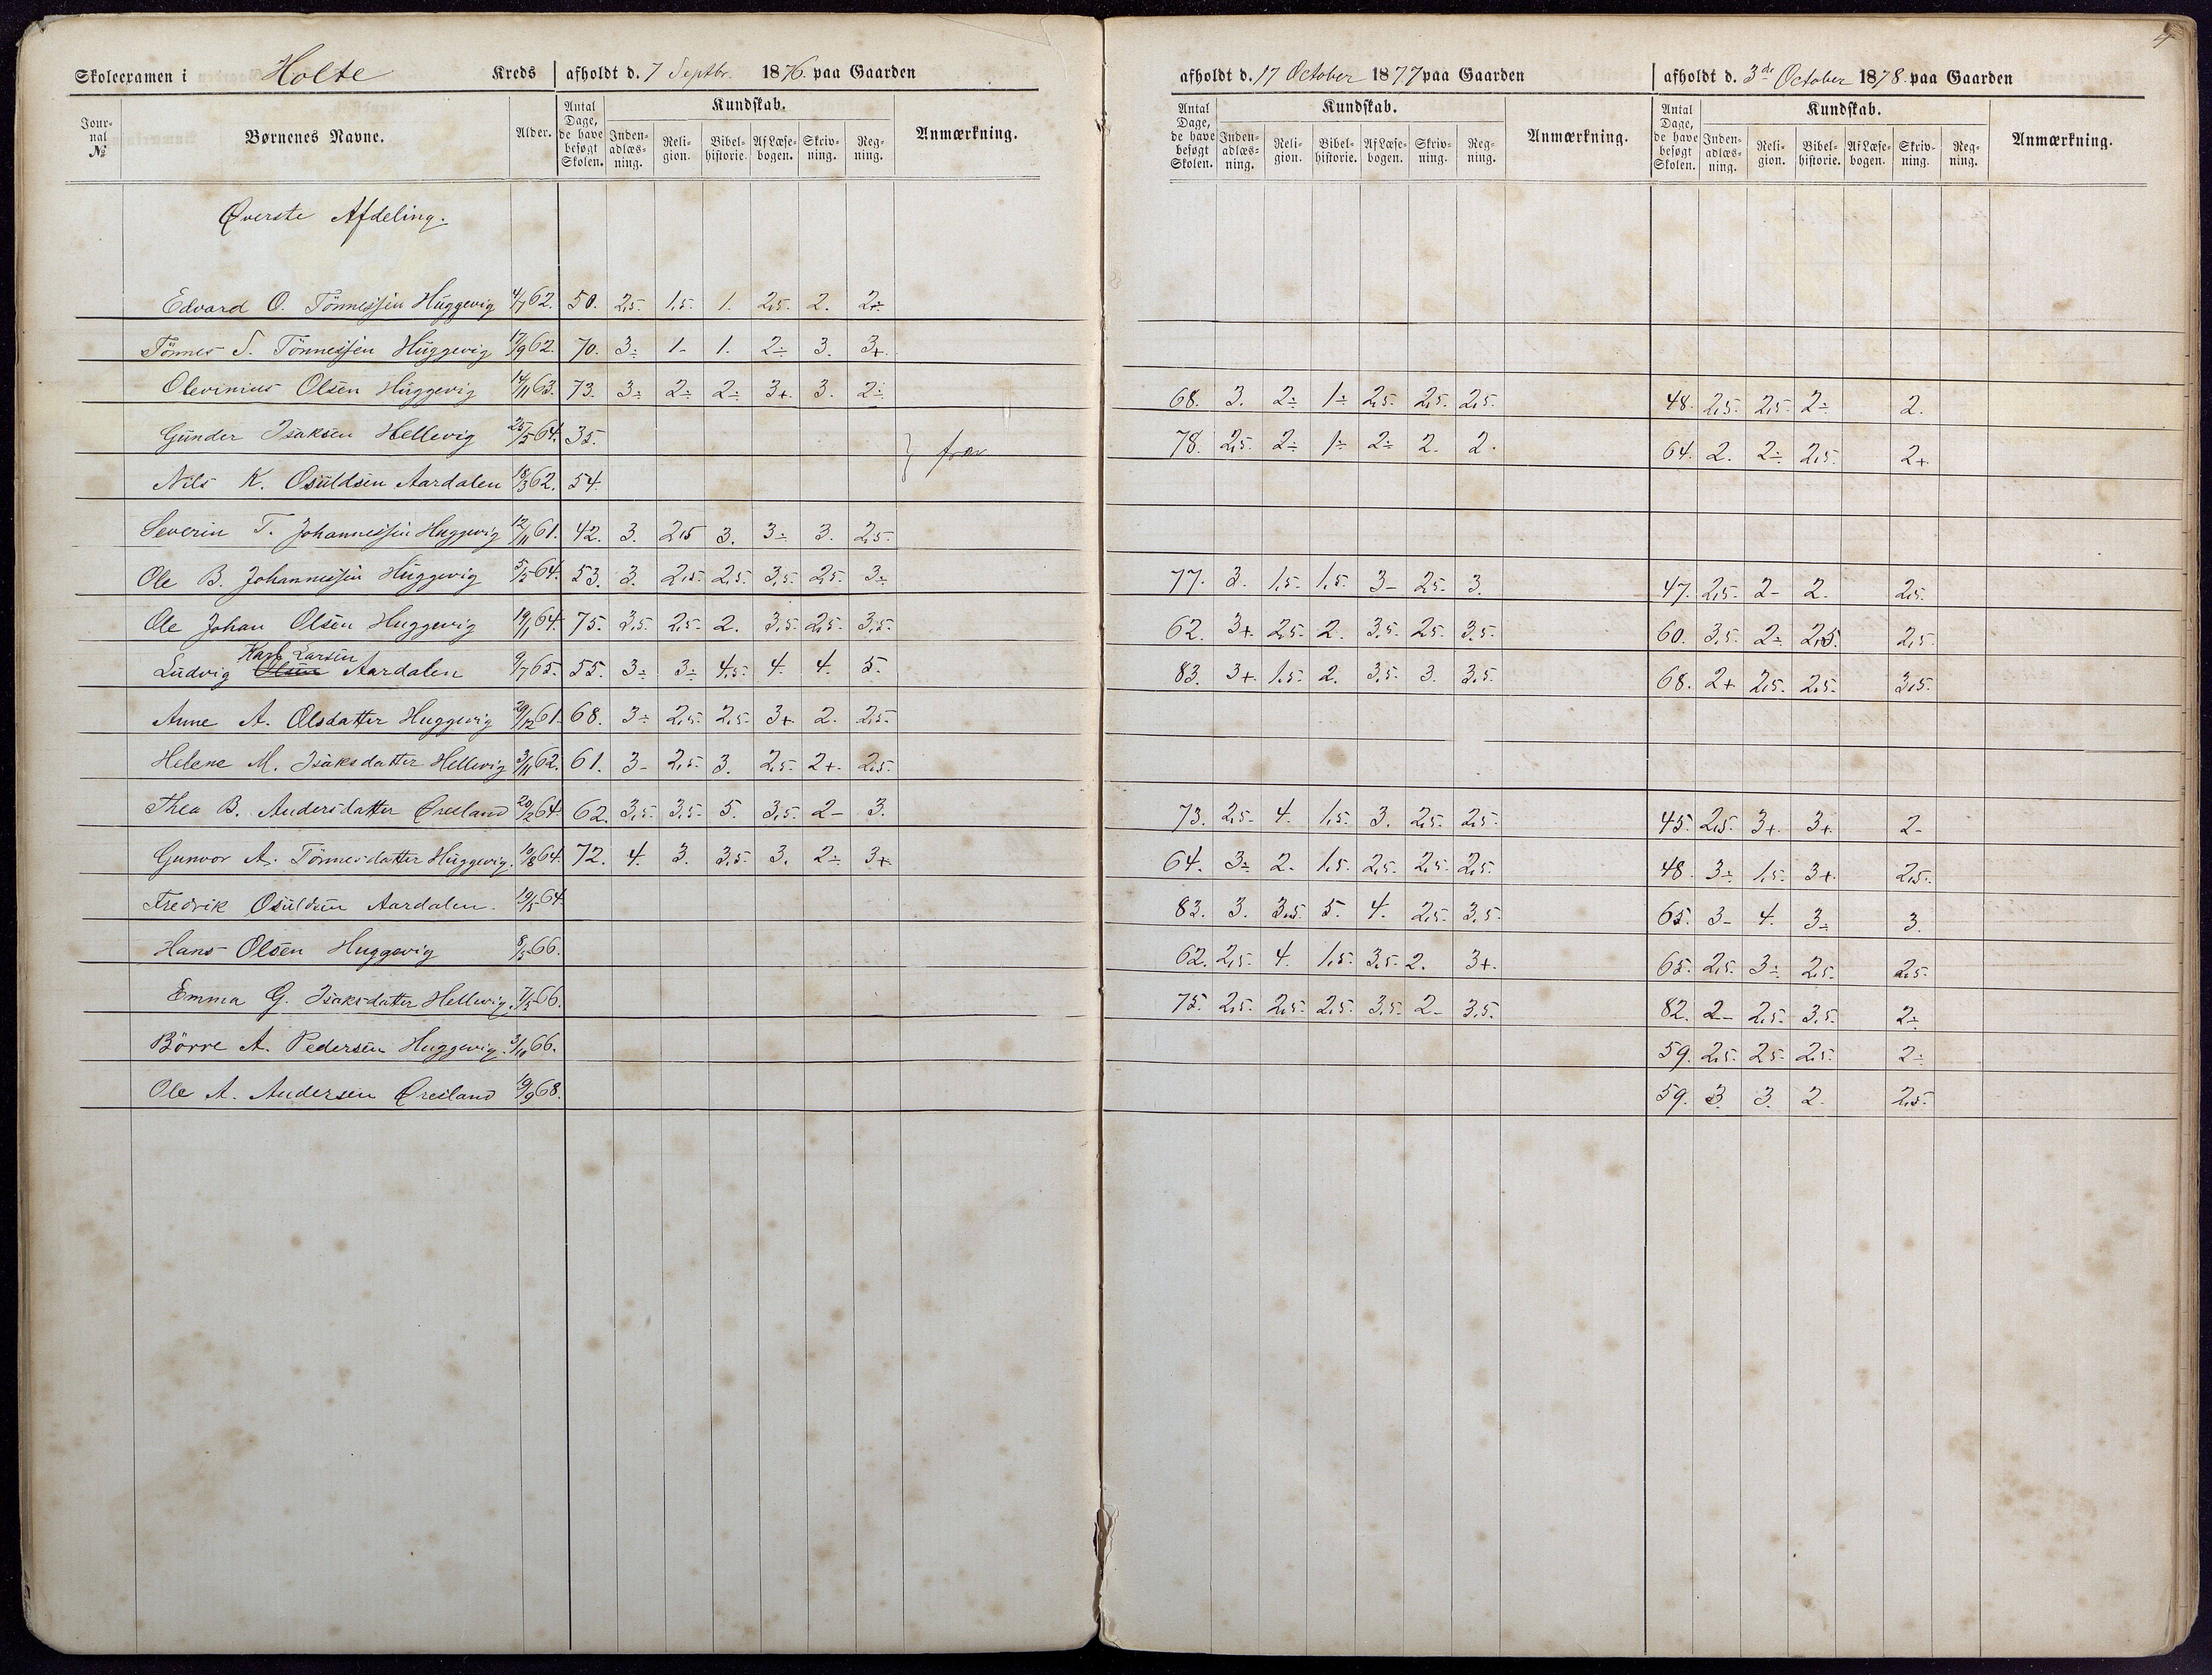 4
Skoleexamen i Holte Kreds afholdt d. 7 Septbr. 1876 paa Gaarden afholdt d. 17 October 1877 paa Gaarden afholdt d. 3de October 1878 paa Gaarden
Jour-nal № Børnenes Navne. Alder. Antal Dage, de have besøgt Skolen. Kundskab. Inden-adlæs-ning. Reli-gion. Bibel-historie. Af Læse-bogen. Skriv-ning. Reg-ning. Anmærkning. Antal Dage, de have besøgt Skolen. Kundskab. Inden-adlæs-ning. Reli-gion. Bibel-historie. Af Læse-bogen. Skriv-ning. Reg-ning. Anmærkning. Antal Dage, de have besøgt Skolen. Kundskab. Inden-adlæs-ning. Reli-gion. Bibel-historie. Af Læse-bogen. Skriv-ning. Reg-ning. Anmærkning.
Øverste Afdeling.
Edvard O. Tönnessen Huggevig 4/7 62. 50. 2,5. 1,5. 1. 2,5. 2. 2÷
Tönnes S. Tönnessen Huggevig 17/9 62. 70. 3÷ 1- 1. 2÷ 3. 3+.
Olevinius Olsen Huggevig 14/11 63. 73. 3÷ 2÷ 2÷ 3+. 3. 2÷ 68. 3. 2÷ 1÷ 2,5. 2,5. 2,5. 48. 2,5. 2,5. 2÷ 2.
Gunder Isaksen Hellevig 25/5 64. 35. } fra 78. 2,5. 2÷ 1÷ 2÷ 2. 2. 64. 2. 2÷ 2,5. 2+.
Nils K. Osuldsen Aardalen 18/3 62. 54.
Severin T. Johannessen Huggevig 12/11 61. 42. 3. 2,5 3. 3÷ 3. 2,5.
Ole B. Johannessen Huggevig 5/5 64. 53. 3. 2,5. 2,5. 3,5. 2,5. 3÷ 77. 3. 1,5. 1,5. 3- 2,5. 3. 47. 2,5. 2- 2. 2,5.
Ole Johan Olsen Huggevig 19/1 64. 75. 3,5. 2,5. 2. 3,5. 2,5. 3,5. 62. 3+. 2,5. 2. 3,5. 2,5. 3,5. 60. 3,5. 2÷ 2,5. 2,5.
Karl Larsen
Ludvig Olsen Aardalen 9/7 65. 55. 3÷ 3÷ 4,5. 4. 4. 5. 83. 3+. 1,5. 2. 3,5. 3. 3,5. 68. 2+ 2,5. 2,5. 3,5.
Anne A. Olsdatter Huggevig 29/12 61. 68. 3÷ 2,5. 2,5. 3+ 2. 2,5.
Helene M. Isaksdatter Hellevig 3/11 62. 61. 3- 2,5. 3. 2,5. 2+. 2,5.
Thea B. Andersdatter Øresland 20/2 64. 62. 3,5. 3,5. 5. 3,5. 2- 3. 73. 2,5. 4. 1,5. 3. 2,5. 2,5. 45. 2,5. 3+. 3+. 2-
Gunvor A. Tönnesdatter Huggevig. 10/8 64. 72. 4. 3. 3,5. 3. 2÷ 3+. 64. 3÷ 2. 1,5. 2,5. 2,5. 2,5. 48. 3÷ 1,5. 3+. 2,5.
Fredrik Osuldsen Aardalen. 19/5 64. 83. 3. 3,5 5. 4. 2,5. 3,5. 65. 3- 4. 3÷ 3.
Hans Olsen Huggevig 8/5 66. 62. 2,5. 4. 1,5. 3,5. 2. 3+. 65. 2,5. 3÷ 2,5. 2,5.
Emma G. Isaksdatter Hellevig. 7/5 66. 75. 2,5. 2,5. 2,5. 3,5. 2- 3,5. 82. 2- 2,5. 3,5. 2÷
Börre A. Pedersen Huggevig. 3/10 66. 59. 2,5. 2,5. 2,5. 2÷
Ole A. Andersen Øresland 19/9 68. 59. 3. 3. 2. 2,5.